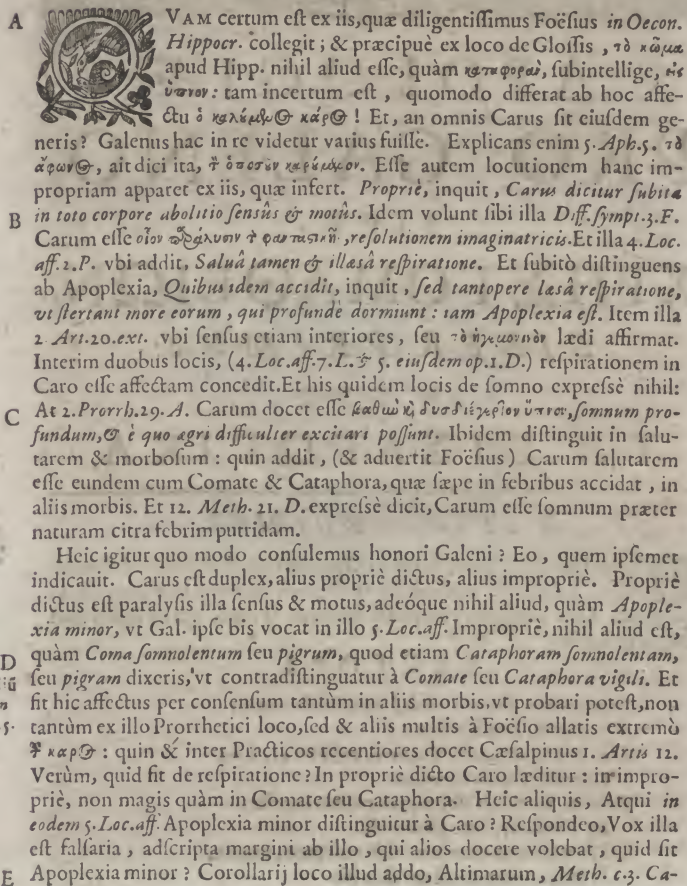 A QVAM certum eſt ex iis, quæ diligentiſſimus Foëſius in Oecon.
Hippocr. collegit; & præcipuè ex loco de Gloſſis, τὸ κῶμα
apud Hipp. nihil aliud eſſe, quàm καταφορὰν, ſubintellige, εἰς
ὕπνον: tam incertum eſt, quomodo differat ab hoc affe-
ctu ὁ καλέμεν῀Ο κάρ῀Ο! Et, an omnis Carus ſit eiuſdem ge-
neris? Galenus hac in re videtur varius fuiſſe. Explicans enim 5. Aph. 5. τὸ
ἄφων῀Ο, ait dici ita, ὁποσῦν καρέμενον. Eſſe autem locutionem hanc im-
propriam apparet ex iis, quæ infert. Propriè, inquit, Carus dicitur ſubita
B in toto corpore abolitio ſensûs & motûs. Idem volunt ſibi illa Diff. ſympt. 3. F.
Carum eſſe οἷον παράλυσιν φανταστικῆ, reſolutionem imaginatricis. Et illa 4. Loc.
aff. 2. P. vbi addit, Saluâ tamen & illæsâ reſpiratione. Et ſubitò diſtinguens
ab Apoplexia, Quibus idem accidit, inquit, ſed tantopere læsâ reſpiratione,
vt ſtertant more eorum, qui profundè dormiunt: iam Apoplexia eſt. Item illa
2 Art. 20. ext. vbi ſenſus etiam interiores, ſeu τὸ ἡγεμονικὸν lædi affirmat.
Interim duobus locis, (4. Loc. aff. 7. L. & 5. eiuſdem op. 1. D.) reſpirationem in
Caro eſſe affectam concedit. Et his quidem locis de ſomno expreſsè nihil:
C At 2. Prorrh. 29. A. Carum docet eſſe βαθὺν κỳ δυσδιέγερτον ὕπνον, ſomnum pro-
fundum, & è quo ægri difficulter excitari poſſunt. Ibidem diſtinguit in ſalu-
tarem & morboſum: quin addit, (& aduertit Foëſius) Carum ſalutarem
eſſe eundem cum Comate & Cataphora, quæ ſæpe in febribus accidat, in
aliis morbis. Et 12. Meth. 21. D. expreſsè dicit, Carum eſſe ſomnum præter
naturam citra febrim putridam.
Heic igitur quo modo conſulemus honori Galeni? Eo, quem ipſemet
indicauit. Carus eſt duplex, alius propriè dictus, alius impropriè. Propriè
dictus eſt paralyſis illa ſenſus & motus, adeóque nihil aliud, quàm Apople-
xia minor, vt Gal. ipſe bis vocat in illo 5. Loc. aff. Impropriè, nihil aliud eſt,
D quàm Coma ſomnolentum ſeu pigrum, quod etiam Cataphoram ſomnolentam,
ſeu pigram dixeris, vt contradiſtinguatur à Comate ſeu Cataphora vigili. Et
fit hic affectus per conſenſum tantùm in aliis morbis, vt probari poteſt, non
5. tantùm ex illo Prorrhetici loco, ſed & aliis multis à Foëſio allatis extremò
καρ῀Ο: quin & inter Practicos recentiores docet Cæſalpinus 1. Artis 12.
Verùm, quid fit de reſpiratione? In propriè dicto Caro læditur: in impro-
priè, non magis quàm in Comate ſeu Cataphora. Heic aliquis, Atqui in
eodem 5. Loc. aff. Apoplexia minor diſtinguitur à Caro? Reſpondeo, Vox illa
eſt falſaria, adſcripta margini ab illo, qui alios docere volebat, quid ſit
E Apoplexia minor? Corollarij loco illud addo, Altimarum, Meth. c. 3. Ca-